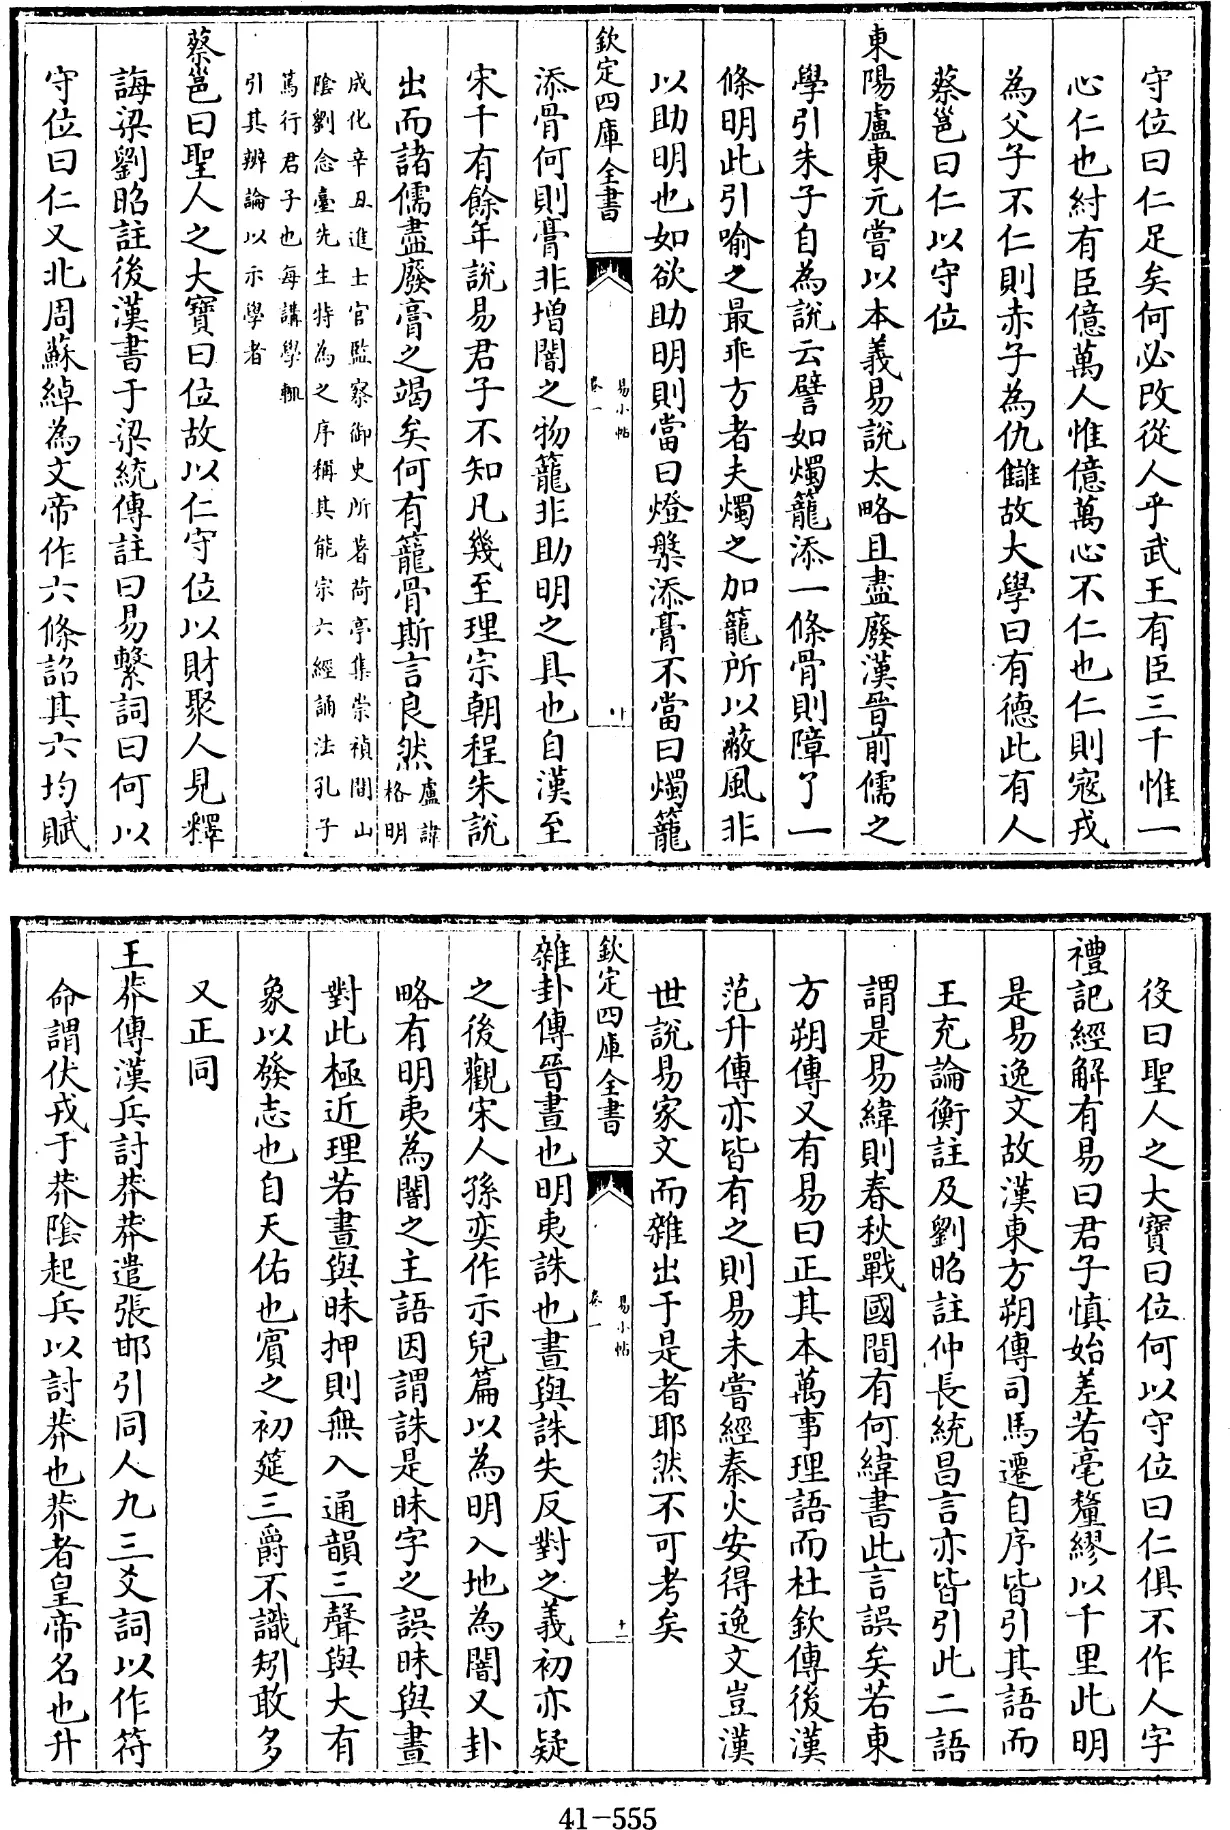 守位曰仁足矣何必改從人乎武王有臣三千惟一
心仁也紂有臣億萬人惟億萬心不仁也仁則寇戎
為父子不仁則赤子為仇讎故大學曰有德此有人
蔡邕曰仁以守位
東陽盧東元嘗以本義易說太略且盡廢漢晉前儒之
學引朱子自為說云譬如燭籠添一條骨則障了一
條明此引喻之最乖方者夫燭之加籠所以蔽風非
以助明也如欲助明則當曰燈檠添膏不當曰燭籠
欽定四庫全書
易小帖
卷一
十
添骨何則膏非增闇之物籠非助明之具也自漢至
宋千有餘年說易君子不知凡幾至理宗朝程朱說
出而諸儒盡廢膏之竭矣何有籠骨斯言良然盧諱
格明
成化辛丑進士官監察御史所著荷亭集崇禎間山
陰劉念臺先生特為之序稱其能宗六經誦法孔子
篤行君子也每講學輒
引其辨論以示學者
蔡邕曰聖人之大寶曰位故以仁守位以財聚人見釋
誨梁劉昭註後漢書于梁統傳註曰易繫詞曰何以
守位曰仁又北周蘇綽為文帝作六條詔其六均賦
役曰聖人之大寶曰位何以守位曰仁俱不作人字
禮記經解有易曰君子慎始差若毫釐繆以千里此明
是易逸文故漢東方朔傳司馬遷自序皆引其語而
王充論衡註及劉昭註仲長統昌言亦皆引此二語
謂是易緯則春秋戰國間有何緯書此言誤矣若東
方朔傳又有易曰正其本萬事理語而杜欽傳後漢
范升傳亦皆有之則易未嘗經秦火安得逸文豈漢
世說易家文而雜出于是者耶然不可考矣
欽定四庫全書
易小帖
卷一
十一
雜卦傳晉晝也明夷誅也晝與誅失反對之義初亦疑
之後觀宋人孫奕作示兒篇以為明入地為闇又卦
略有明夷為闇之主語因謂誅是昧字之誤昧與晝
對此極近理若晝與昧押則無入通韻三聲與大有
象以發志也自天佑也賓之初筵三爵不識矧敢多
又正同
王莽傳漢兵討莽莽遣張邯引同人九三爻詞以作符
命謂伏戎于莽陰起兵以討莽也莽者皇帝名也升
41-555